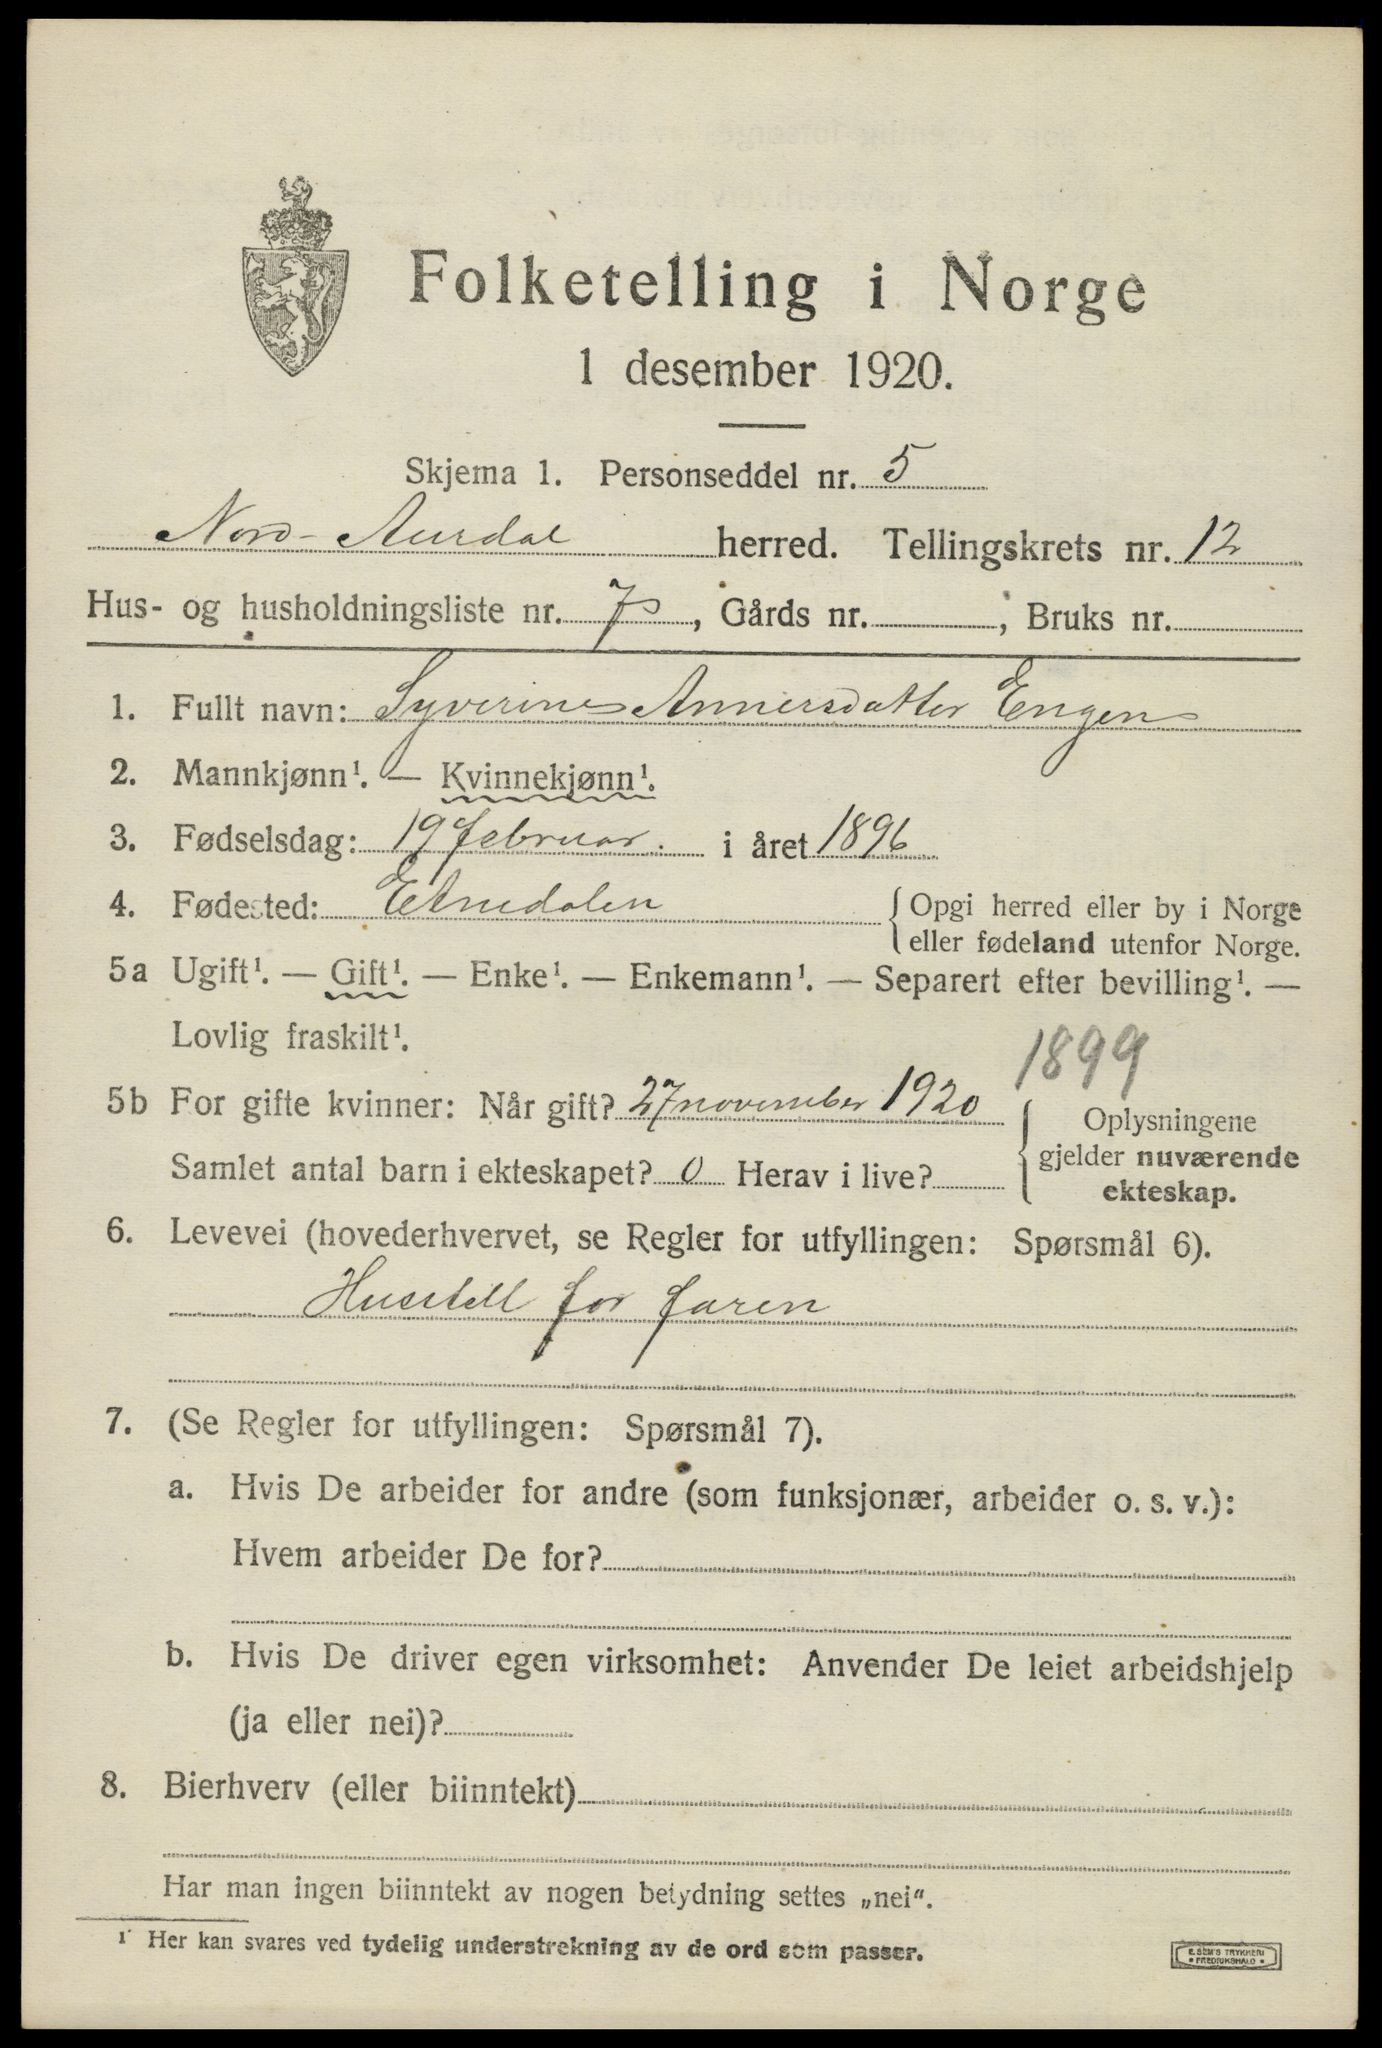 Folketelling i Norge
1 desember 1920.
Skjema 1. Personseddel nr. 5
Nord-Aurdal herred. Tellingskrets nr. 12
Hus- og husholdningsliste nr. 7, Gårds nr. , Bruks nr.
1. Fullt navn: Syverine Annersdatter Engen
2. Mannkjønn¹. — Kvinnekjønn¹.
3. Fødselsdag: 19 februar. i året 1896
4. Fødested: Etnedalen { Opgi herred eller by i Norge
eller fødeland utenfor Norge.
5a Ugift¹. — Gift¹. — Enke¹. — Enkemann¹. — Separert efter bevilling¹. —
Lovlig fraskilt¹.
1899
5b For gifte kvinner: Når gift? 27 november 1920
Samlet antal barn i ekteskapet? 0 Herav i live?
{ Oplysningene
gjelder nuværende
ekteskap.
6. Levevei (hovederhvervet, se Regler for utfyllingen: Spørsmål 6).
Husstell for faren
7. (Se Regler for utfyllingen: Spørsmål 7).
a. Hvis De arbeider for andre (som funksjonær, arbeider o. s. v.):
Hvem arbeider De for?
b. Hvis De driver egen virksomhet: Anvender De leiet arbeidshjelp
(ja eller nei)?
8. Bierhverv (eller biinntekt)
Har man ingen biinntekt av nogen betydning settes „nei".
¹ Her kan svares ved tydelig understrekning av de ord som passer.
E. SEM'S TRYKKERI
• FREDRIKSHALD •